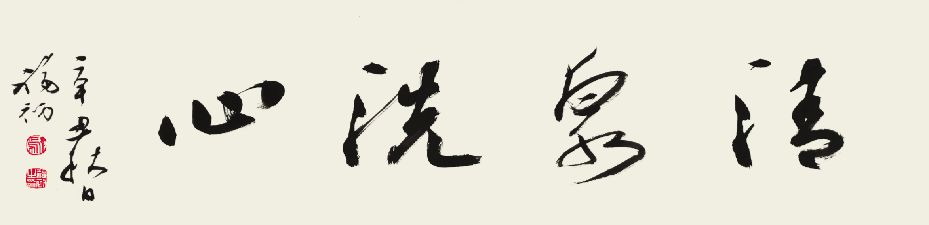 清泉洗心
辛丑秋日
福初